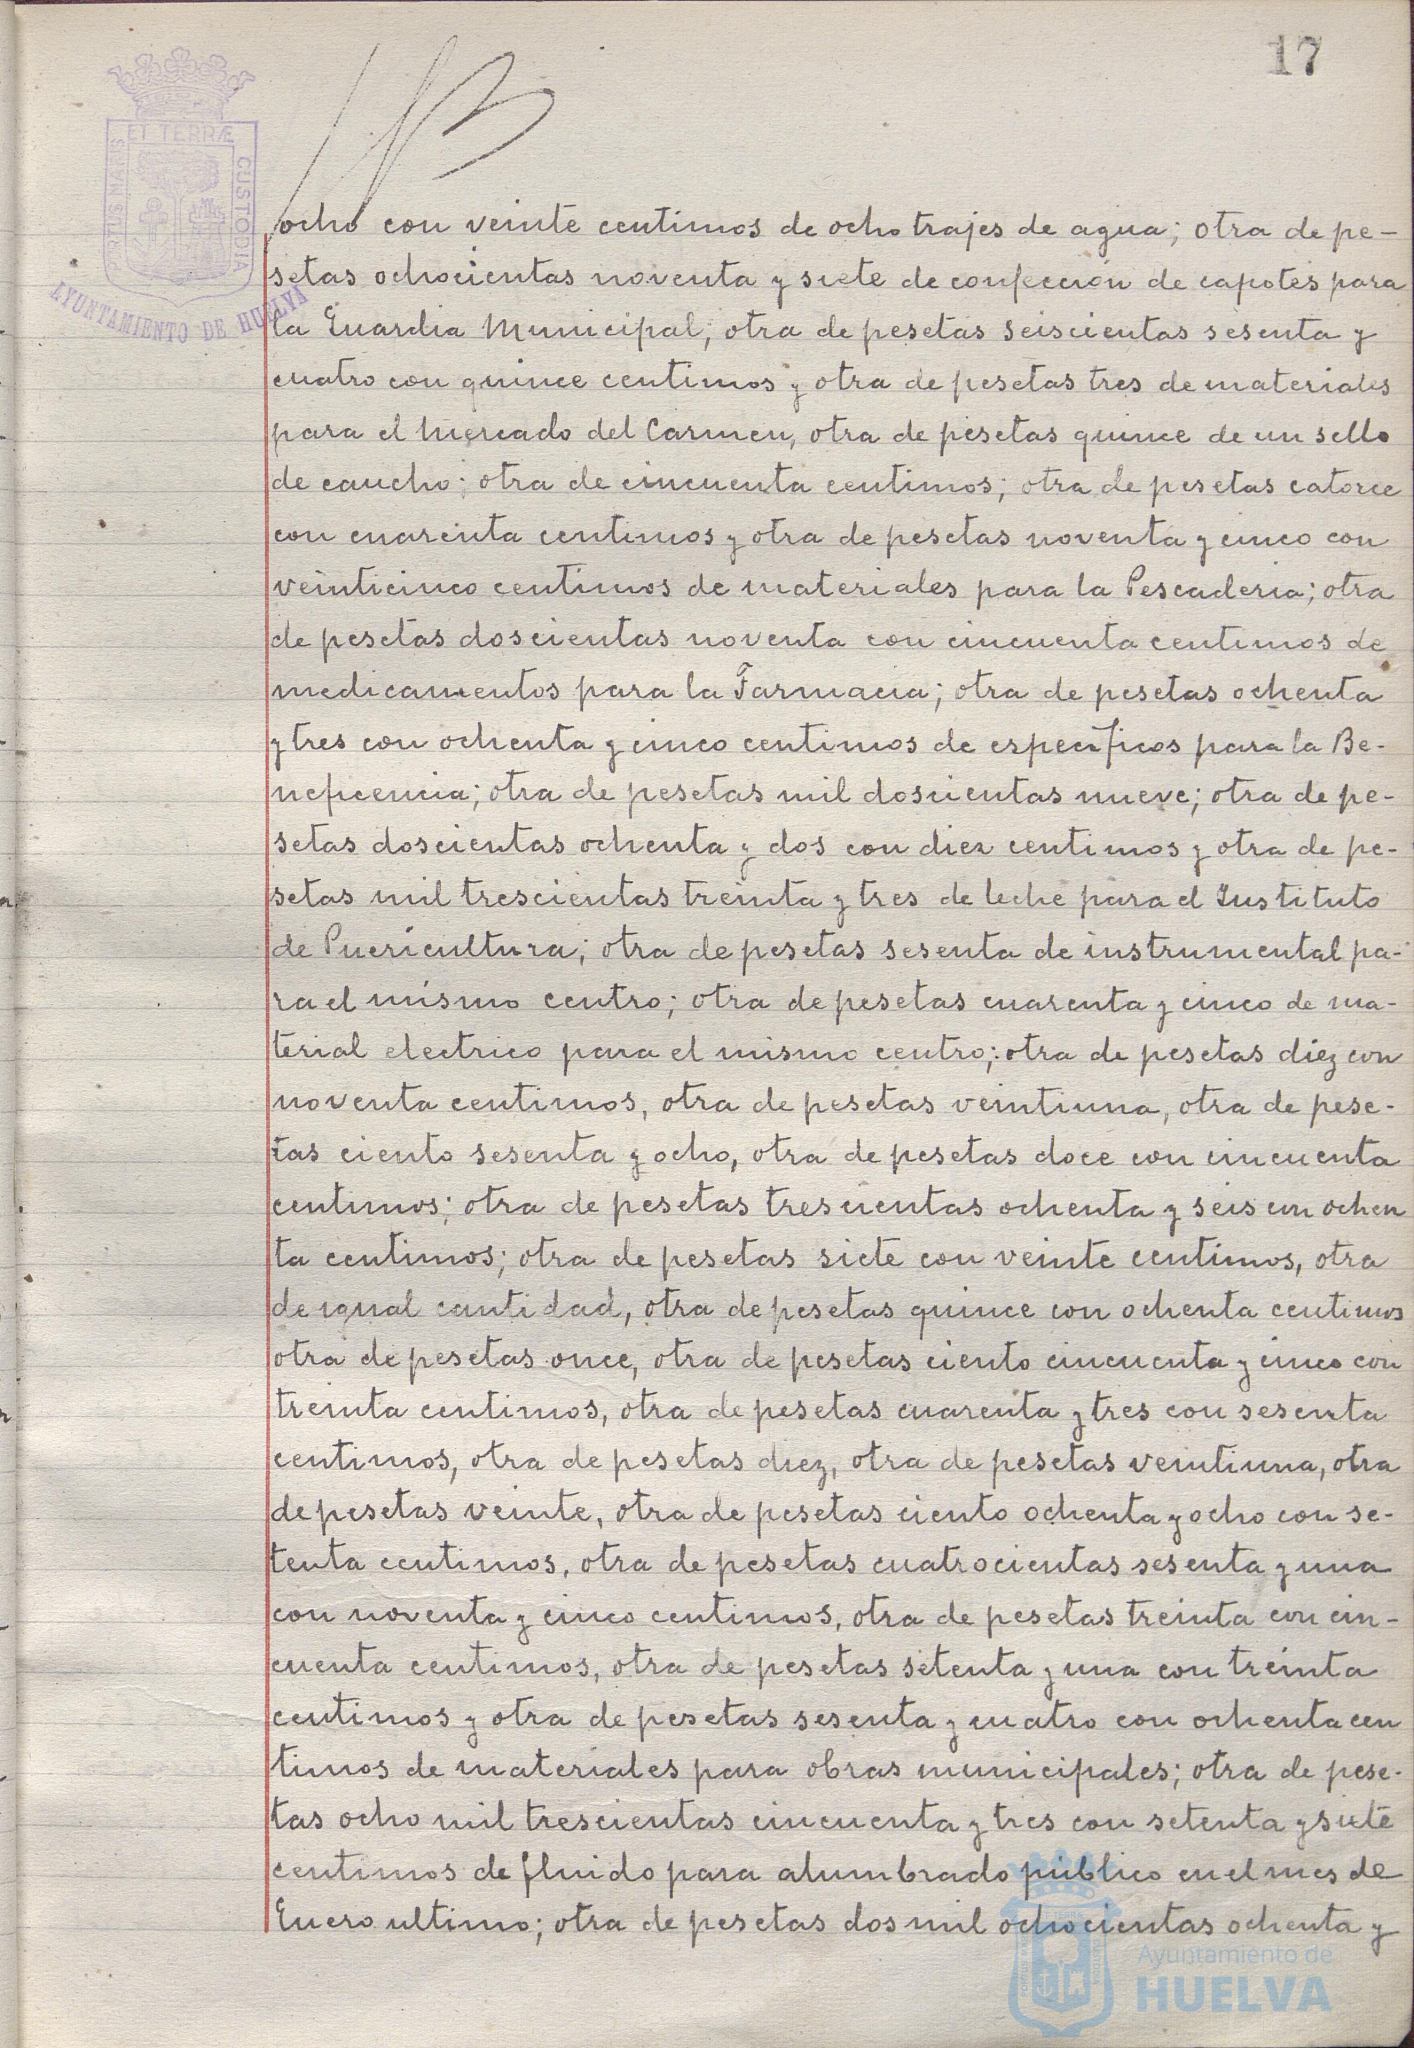 17
PORTUS MARIS
ET TERRÆ
CUSTODIA
AYUNTAMIENTO DE HUELVA
ocho con veinte centimos de ocho trajes de agua; otra de pe-
setas ochocientas noventa y siete de confección de capotes para
la Guardia Municipal; otra de pesetas seiscientas sesenta y
cuatro con quince centimos y otra de pesetas tres de materiales
para el Mercado del Carmen, otra de pesetas quince de un sello
de caucho; otra de cincuenta centimos; otra de pesetas catorce
con cuarenta centimos y otra de pesetas noventa y cinco con
veinticinco centimos de materiales para la Pescaderia; otra
de pesetas doscientas noventa con cincuenta centimos de
medicamentos para la Farmacia; otra de pesetas ochenta
y tres con ochenta y cinco centimos de especificos para la Be-
neficencia; otra de pesetas mil doscientas nueve; otra de pe-
setas doscientas ochenta y dos con diez centimos y otra de pe-
setas mil trescientas treinta y tres de leche para el Instituto
de Puericultura; otra de pesetas sesenta de instrumental pa-
ra el mismo centro; otra de pesetas cuarenta y cinco de ma-
terial electrico para el mismo centro; otra de pesetas diez con
noventa centimos, otra de pesetas veintiuna, otra de pese-
tas ciento sesenta y ocho, otra de pesetas doce con cincuenta
centimos; otra de pesetas trescientas ochenta y seis con ochen
ta centimos; otra de pesetas siete con veinte centimos, otra
de igual cantidad, otra de pesetas quince con ochenta centimos
otra de pesetas once, otra de pesetas ciento cincuenta y cinco con
treinta centimos, otra de pesetas cuarenta y tres con sesenta
centimos, otra de pesetas diez, otra de pesetas veintiuna, otra
de pesetas veinte, otra de pesetas ciento ochenta y ocho con se-
tenta centimos, otra de pesetas cuatrocientas sesenta y una
con noventa y cinco centimos, otra de pesetas treinta con cin-
cuenta centimos, otra de pesetas setenta y una con treinta
centimos y otra de pesetas sesenta y cuatro con ochenta cen
timos de materiales para obras municipales; otra de pese-
tas ocho mil trescientas cincuenta y tres con setenta y siete
centimos de fluido para alumbrado público en el mes de
Enero ultimo; otra de pesetas dos mil ochocientas ochenta y
Ayuntamiento de
HUELVA